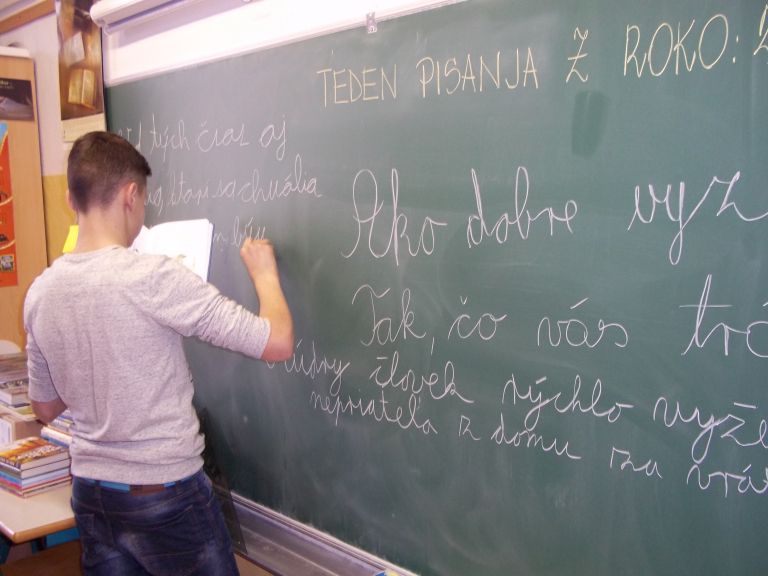 TEDEN PISANJA Z ROKO:
tých čias aj
sa chvália
Ako dobre vyz
Tak, čo vás trá
múdry človek rýchlo vyže
nepriateľa z domu za vrá